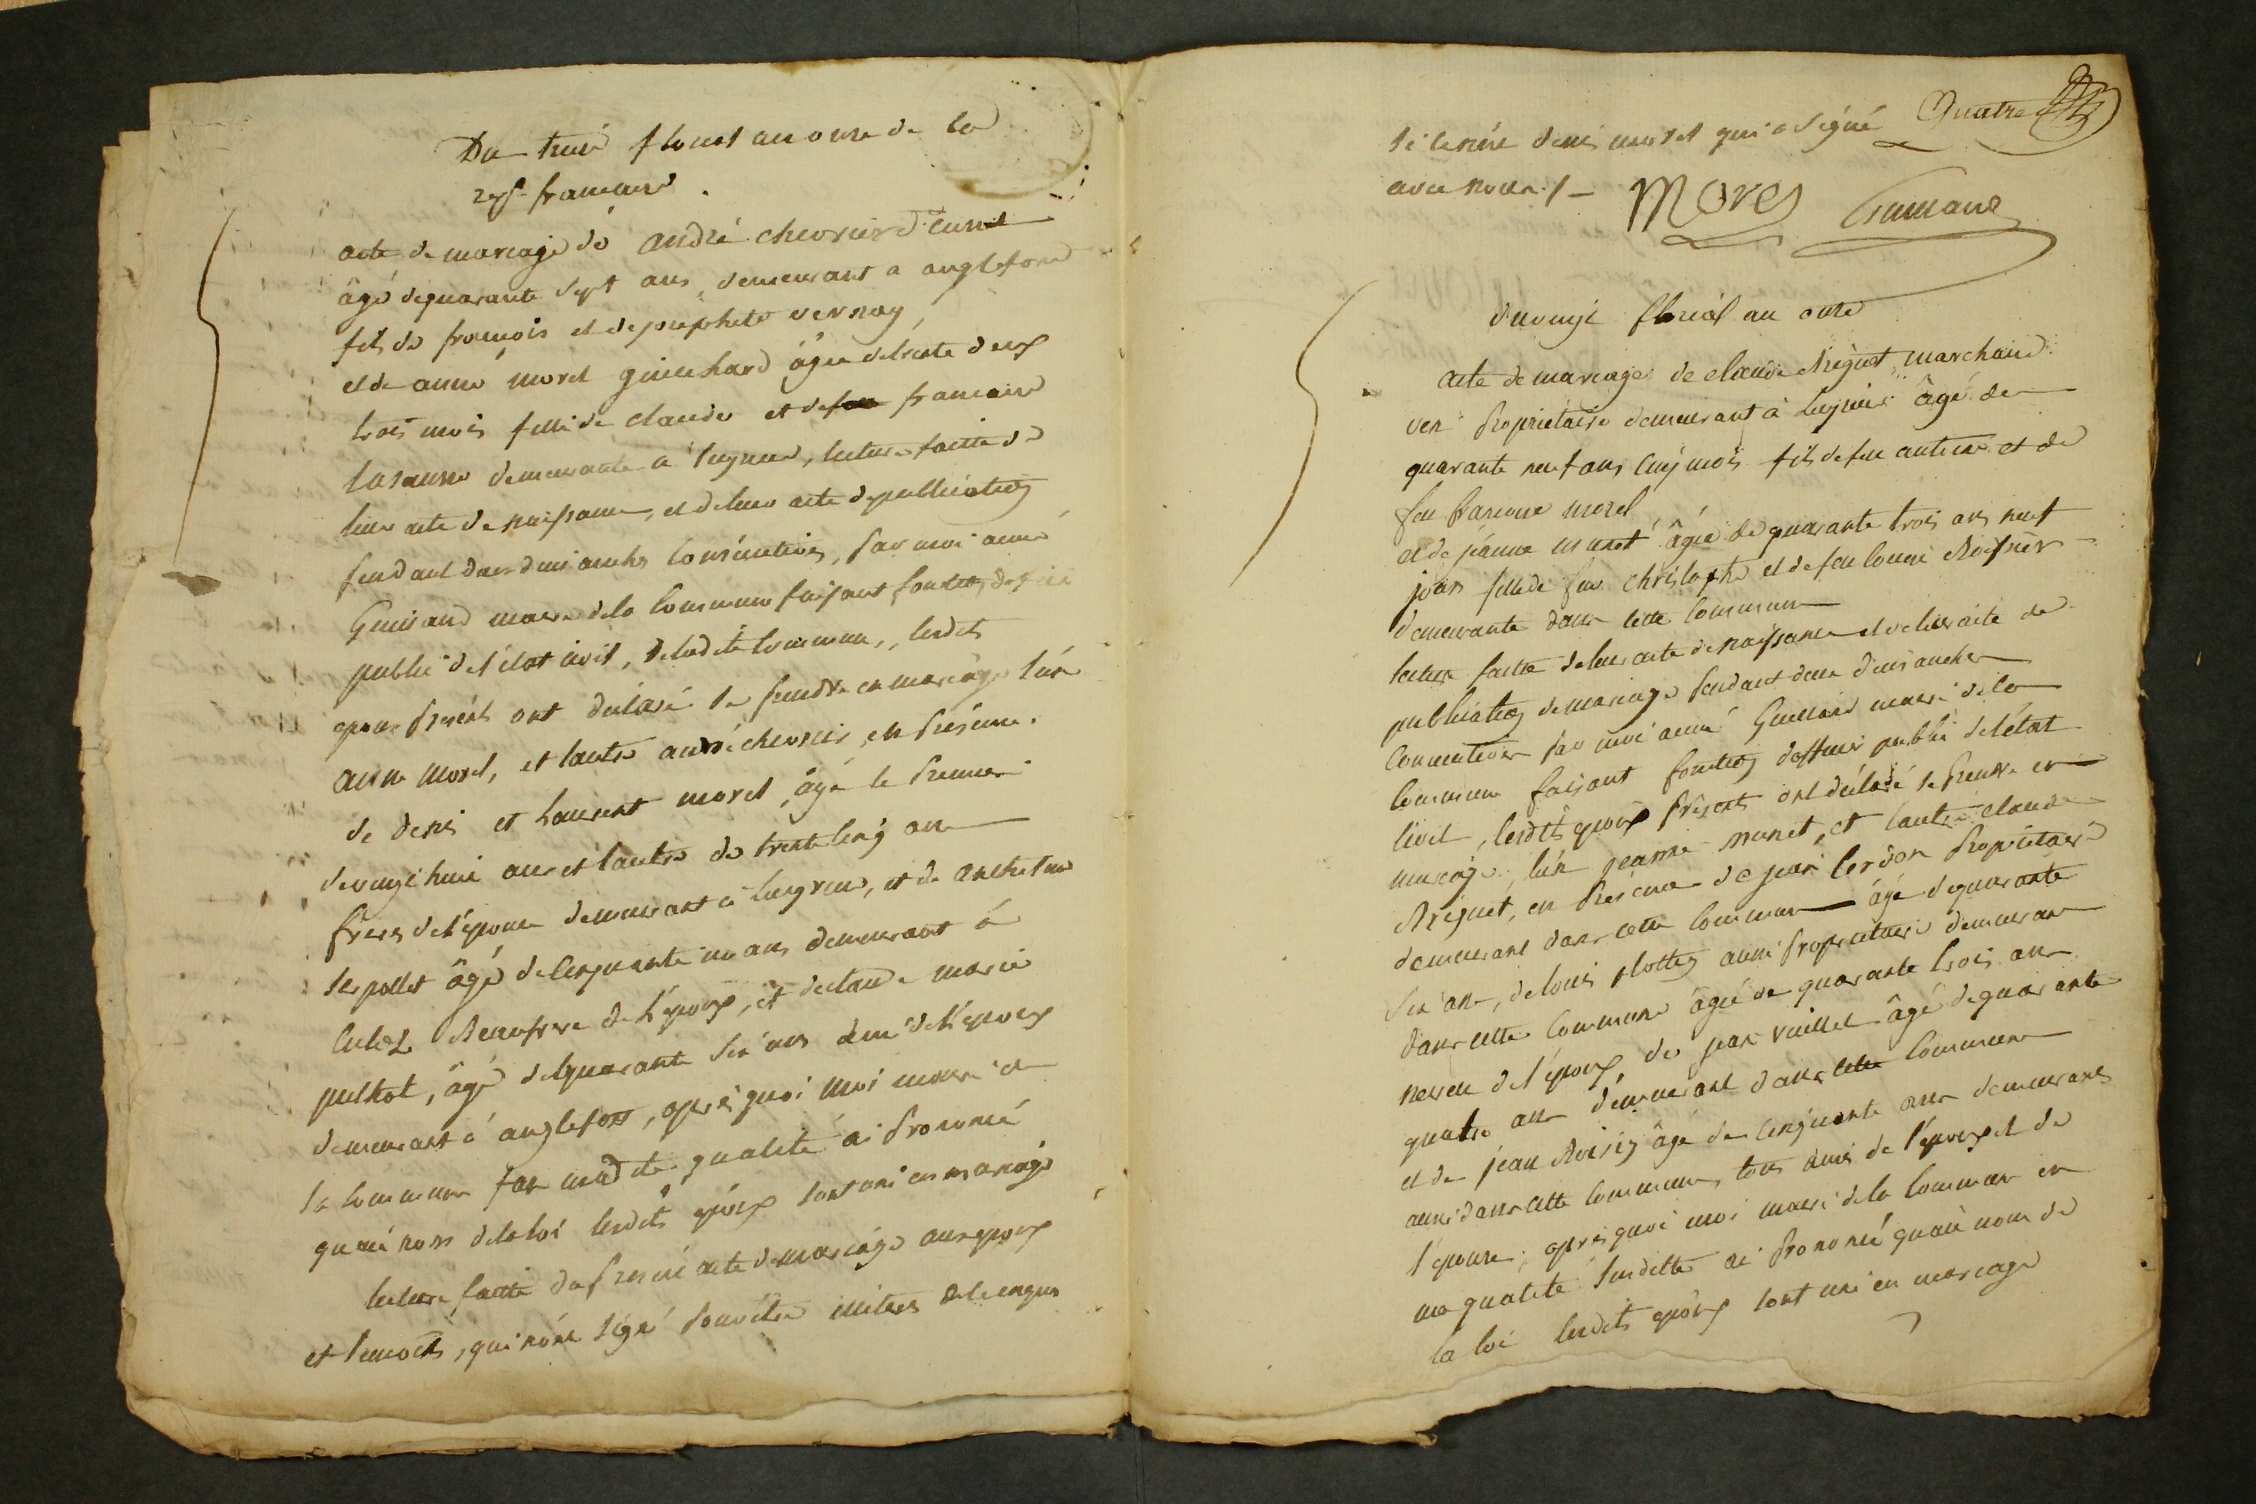 Du treize floreal an onze de la
rep. francaise.
acte de mariage de andré chevrier
âgé de quarante sept ans, demeurant a anglefort
fils de francois et de vernay,
et de anne morel guinchard âgée de trente deux
trois mois fille de claude et de francoise
demeurante a lugrin, lecture faitte de
leur acte de naissance, et de leur acte de publication
pendant deux dimanches consécutives, par moi aimé
maire de la commune faisant fonction d'officier
public de l'état civil, de ladite commune, lesdits
époux présents ont déclaré se prendre en mariage l'une
anne morel, et lautre andré chevrier, en présence
de denis et laurent morel, âgé le premier
de vingt huit ans et lautre de trente cinq ans
freres de l'épouse demeurant à, et de anthelme
serpollet âgé de cinquante un ans demeurant à
culoz Beaufrere de l'époux, et de claude marie
pulthot, âgé de quarante six ans ami de l'époux
demeurant à anglefort, après quoi moi maire de
la commune en madite qualité ai prononcé
qu'au nom de la loi lesdits époux sont uni en mariage
lecture faitte du present acte de mariage aux époux
et temoins, qui n'ont signé pour être illitérés de ce enquis
si ce n'est denis morel qui a signé
avec nous./-
Quatre
Morel
du vingt floréal an onze
acte de mariage de claude Briguet, marchand
propriétaire demeurant à âgé de
quarante neuf ans cinq mois fils de feu antoine et de
feu francoise morel
et de jeanne munet âgée de quarante trois ans neuf
jours fille de feu christophe et de feu louise
demeurante dans cette commune
lecture faitte de leur acte de naissance et de leur acte de
publication de mariage pendant deux dimanches
consécutives par moi aimé maire de la
commune faisant fonction d'officier public de l'état
civil, lesdits époux présents ont déclaré se prendre en
mariage, l'une jeanne munet, et lautre claude
Briguet, en présence de jean cerdon propriétaire
demeurant dans cette commune âgé de quarante
six ans, de louis aussi propriétaire demeurant
dans cette commune âgé de quarante trois ans
neveu de l'époux, de jean vuillet âgé de quarante
quatre ans demeurant dans cette commune
et de jean âgé de cinquante ans demeurant
aussi dans cette commune, tous amis de l'époux et de
l'épouse, après quoi moi maire de la commune en
ma qualité susditte ai prononcé qu'au nom de
la loi lesdits époux sont uni en mariage